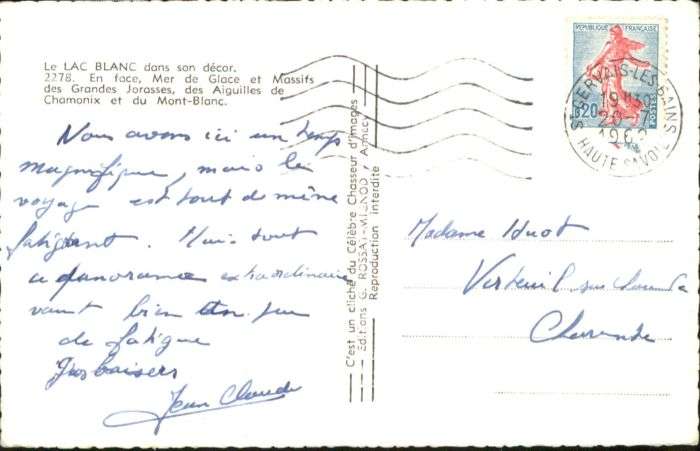 Le LAC BLANC dans son décor.
2278. En face, Mer de Glace et Massifs
des Grandes Jorasses, des Aiguilles de
Chamonix et du Mont-Blanc.
Nous avons ici un temps
magnifique, mais le
voyage est tout de même
fatigant. Mais tout
ce panorama extraordinaire
vaut bien un peu
de fatigue
Gros baisers
Jean Claude
C'est un cliché du Célèbre Chasseur d'Images
Editions G. ROSSAT-MIGNOD, Annecy
Reproduction interdite
REPUBLIQUE FRANÇAISE
0,20
POSTES
ST GERVAIS-LES-BAINS
19H30
20-7
HAUTE SAVOIE
Madame Huot
Verteuil sur Charente
Charente